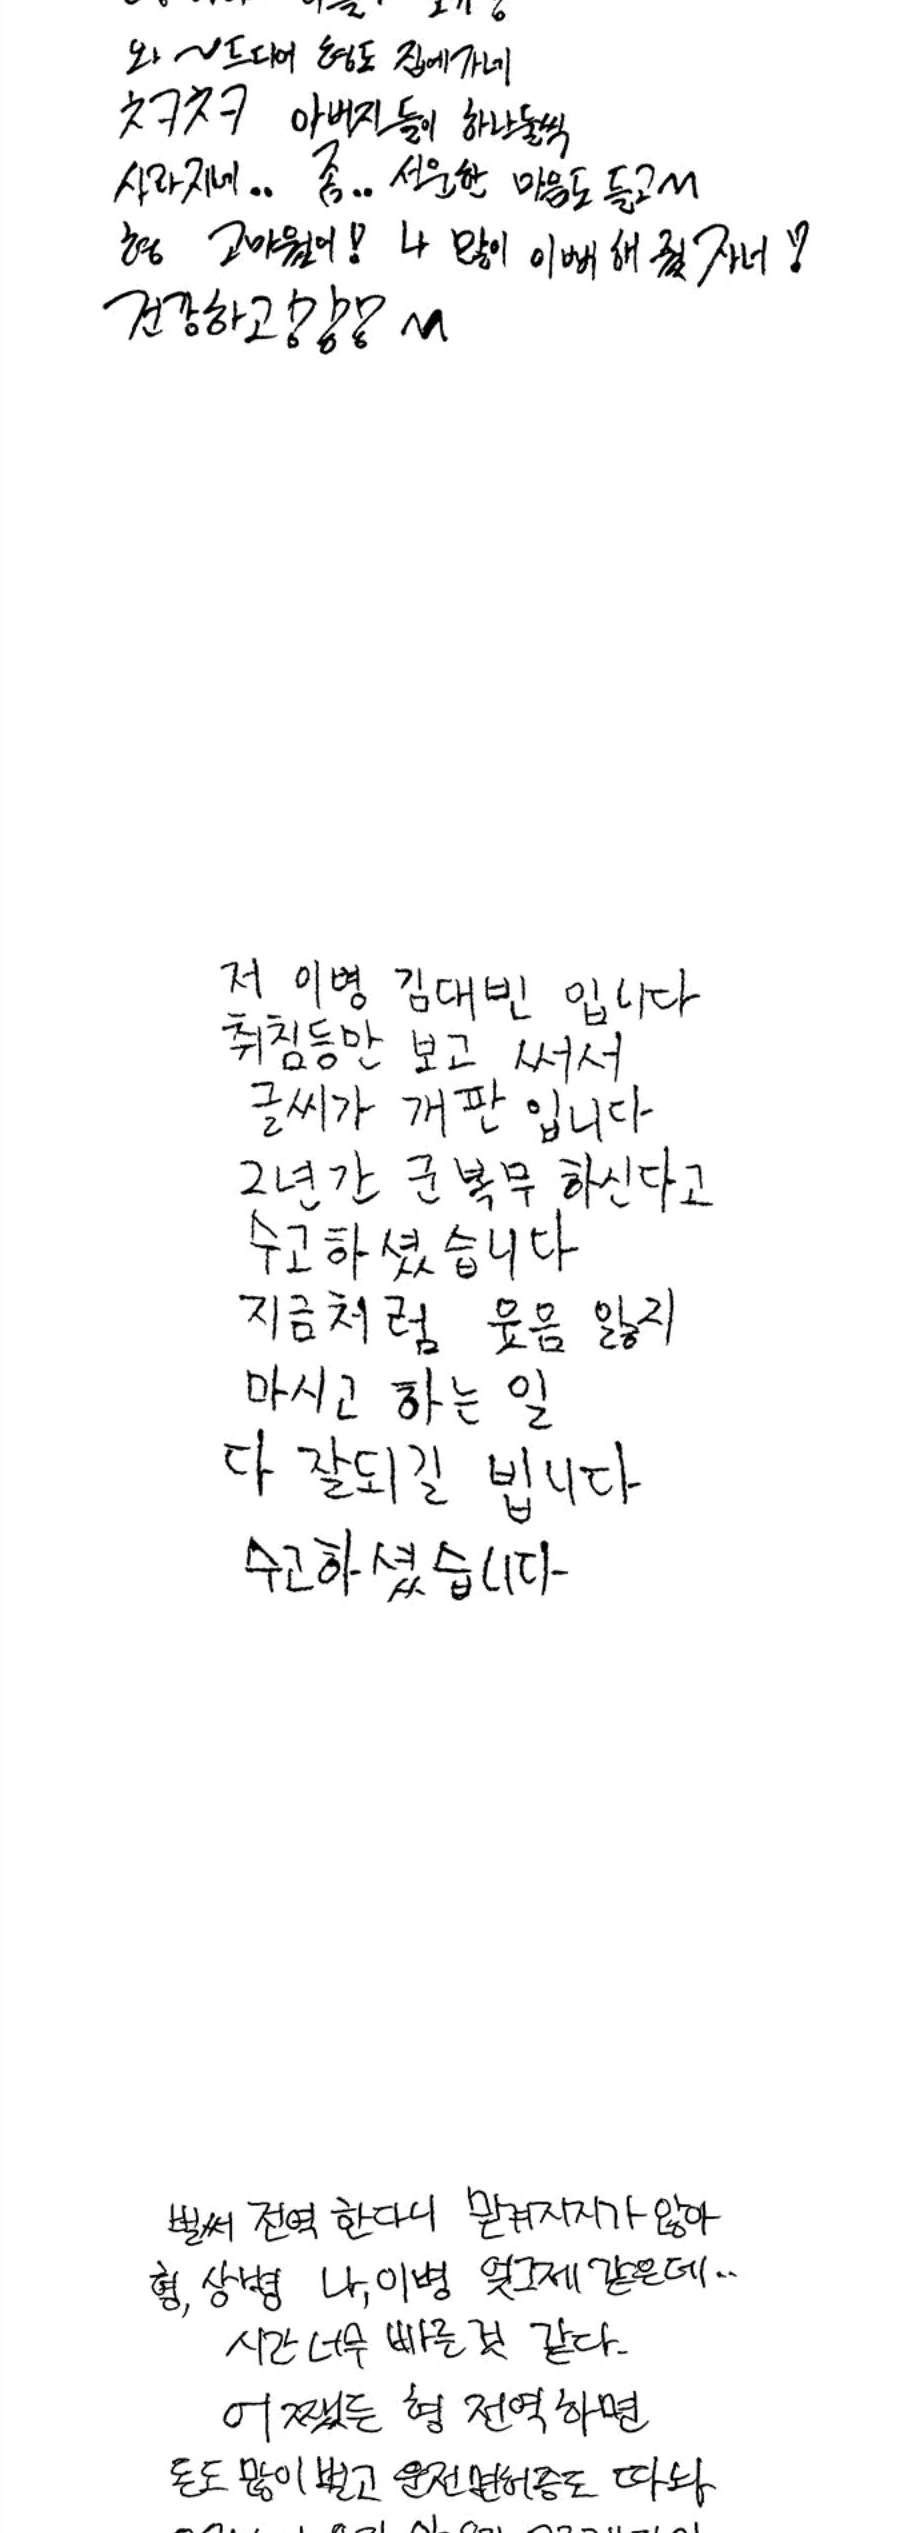 와~드디어 형도 집에가네
ㅊㅋㅊㅋ 아버지들이 하나둘씩
사라지네.. 좀.. 서운한 마음도 들고~
형 고마웠어! 나 많이 이뻐해 줬자너!
건강하고!
저 이병 김대빈 입니다
취침등만 보고 써서
글씨가 개판 입니다
2년간 군복무 하신다고
수고하셨습니다
지금처럼 웃음 잃지
마시고 하는 일
다 잘되길 빕니다
수고하셨습니다
벌써 전역 한다니 믿겨지지가 않아
형,상병 나,이병 엊그제 같은데..
시간 너무 빠른 것 같다.
어쨌든 형 전역하면
돈도 많이 벌고 운전면허증도 따놔